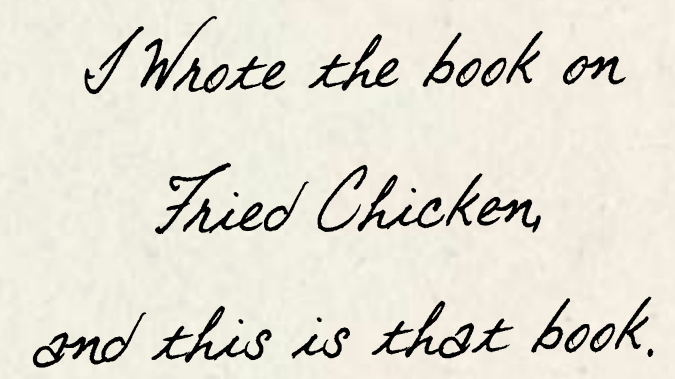 I Wrote the book on
Fried Chicken,
and this is that book.